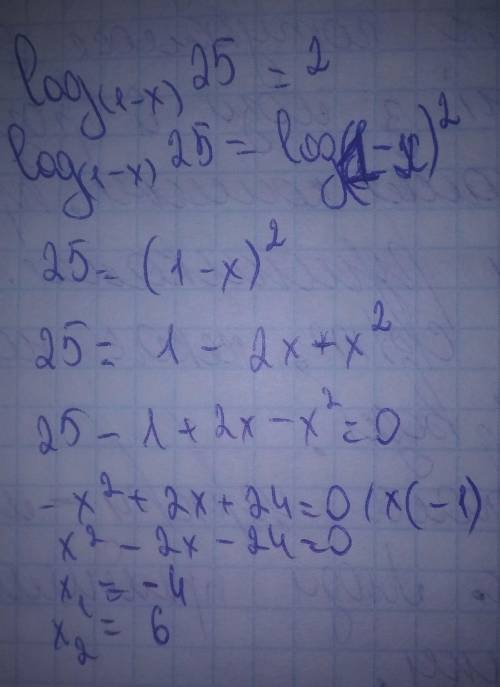 log₍₁₋ₓ₎ 25 = 2
log₍₁₋ₓ₎ 25 = log(1-x)²
25 = (1-x)²
25 = 1 - 2x + x²
25 - 1 + 2x - x² = 0
-x² + 2x + 24 = 0 | x(-1)
x² - 2x - 24 = 0
x₁ = -4
x₂ = 6